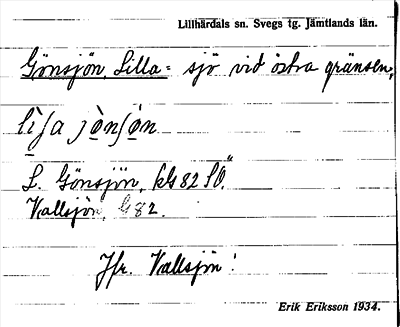 Lillhärdals sn. Svegs tg. Jämtlands län.
Gönsjön, Lilla = sjö vid östra gränsen,
L. Gönsjön, kbl 82 SÖ.
Vallsjön, G 82.
Jfr. Vallsjön!
Erik Eriksson 1934.